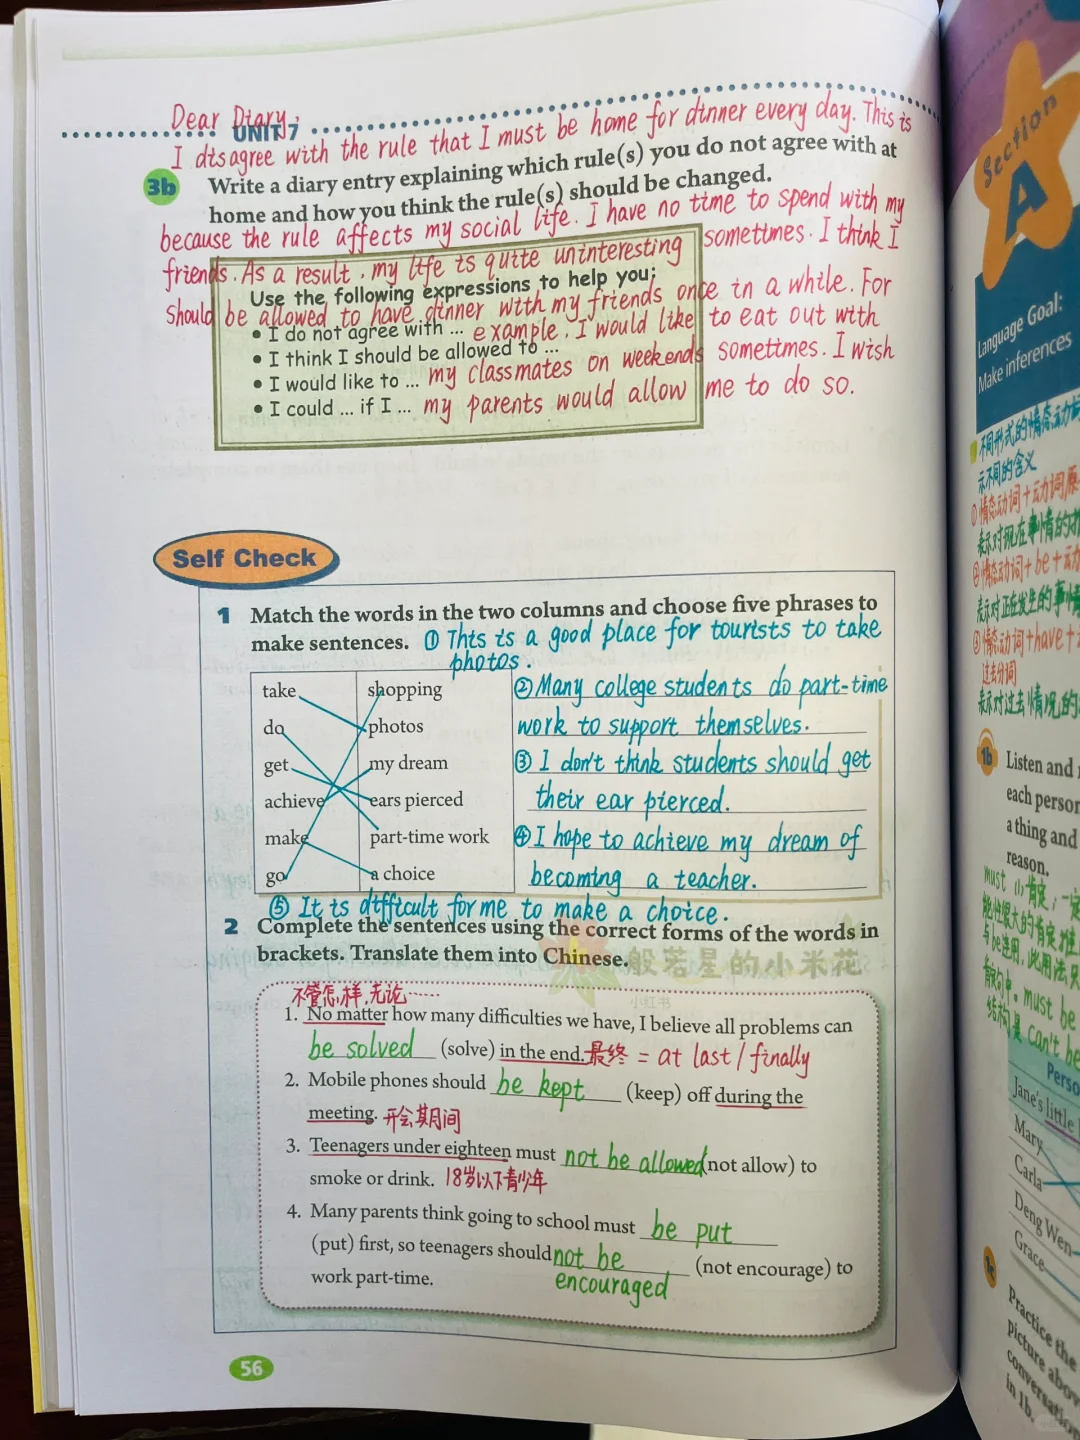 Dear Diary,
UNIT 7
I disagree with the rule that I must be home for dinner every day. This is
3b Write a diary entry explaining which rule(s) you do not agree with at
home and how you think the rule(s) should be changed.
because the rule affects my social life. I have no time to spend with my
friends. As a result, my life is quite uninteresting sometimes. I think I
Use the following expressions to help you:
should be allowed to have dinner with my friends once in a while. For
• I do not agree with ... example, I would like to eat out with
• I think I should be allowed to ...
my classmates on weekends sometimes. I wish
• I would like to ...
• I could ... if I ... my parents would allow me to do so.
Self Check
1 Match the words in the two columns and choose five phrases to
make sentences. ① This is a good place for tourists to take
photos.
take shopping ②Many college students do part-time
do photos work to support themselves.
get my dream ③ I don't think students should get
achieve ears pierced their ear pierced.
make part-time work ④I hope to achieve my dream of
go a choice becoming a teacher.
⑤ It is difficult for me to make a choice.
2 Complete the sentences using the correct forms of the words in
brackets. Translate them into Chinese.
般若星的小米花
小红书
不管怎样,无论……
1. No matter how many difficulties we have, I believe all problems can
be solved (solve) in the end.最终 = at last / finally
2. Mobile phones should be kept (keep) off during the
meeting. 开会期间
3. Teenagers under eighteen must not be allowed(not allow) to
smoke or drink. 18岁以下青少年
4. Many parents think going to school must be put
(put) first, so teenagers should not be (not encourage) to
encouraged
work part-time.
56
Section
A
Language Goal:
Make inferences
不同形式的情态动词
示不同的含义
①情态动词+动词原
表示对现在事情的
②情态动词+be+动
表示对正在发生的事情
③情态动词+have+
过去分词
表示对过去情况的
1b Listen and
each person
a thing and
reason.
must
must be
结构是 can't be
Perso
Jane's little
Mary
Carla
Deng Wen
Grace
1c Practice the
picture above
conversation
in 1b.